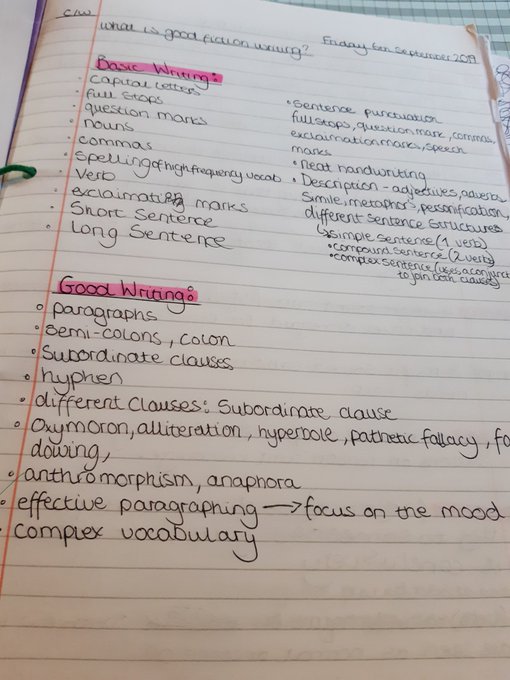 c/w
What is good fiction writing?
Friday 6th September 2019
Basic Writing:
• Capital letters
• full stops
• question marks
• nouns
• commas
• Spelling of high frequency vocab
• Verb
• exclaimation marks
• Short Sentence
• Long Sentence
• Sentence punctuation
full stops, question mark, commas,
exclaimation marks, speech
marks
• Neat handwriting
• Description - adjectives, adverbs
Simile, metaphors, personification,
different sentence structures
↳ simple sentence (1 verb)
• compound sentence (2 verb)
• complex sentence (uses a conjunct
to join both clauses)
Good Writing:
• paragraphs
• semi-colons, colon
• Subordinate clauses
• hyphen
• different Clauses: Subordinate clause
• Oxymoron, alliteration, hyperbole, pathetic fallacy, fo
dowing,
• anthromorphism, anaphora
• effective paragraphing → focus on the mood
• complex vocabulary